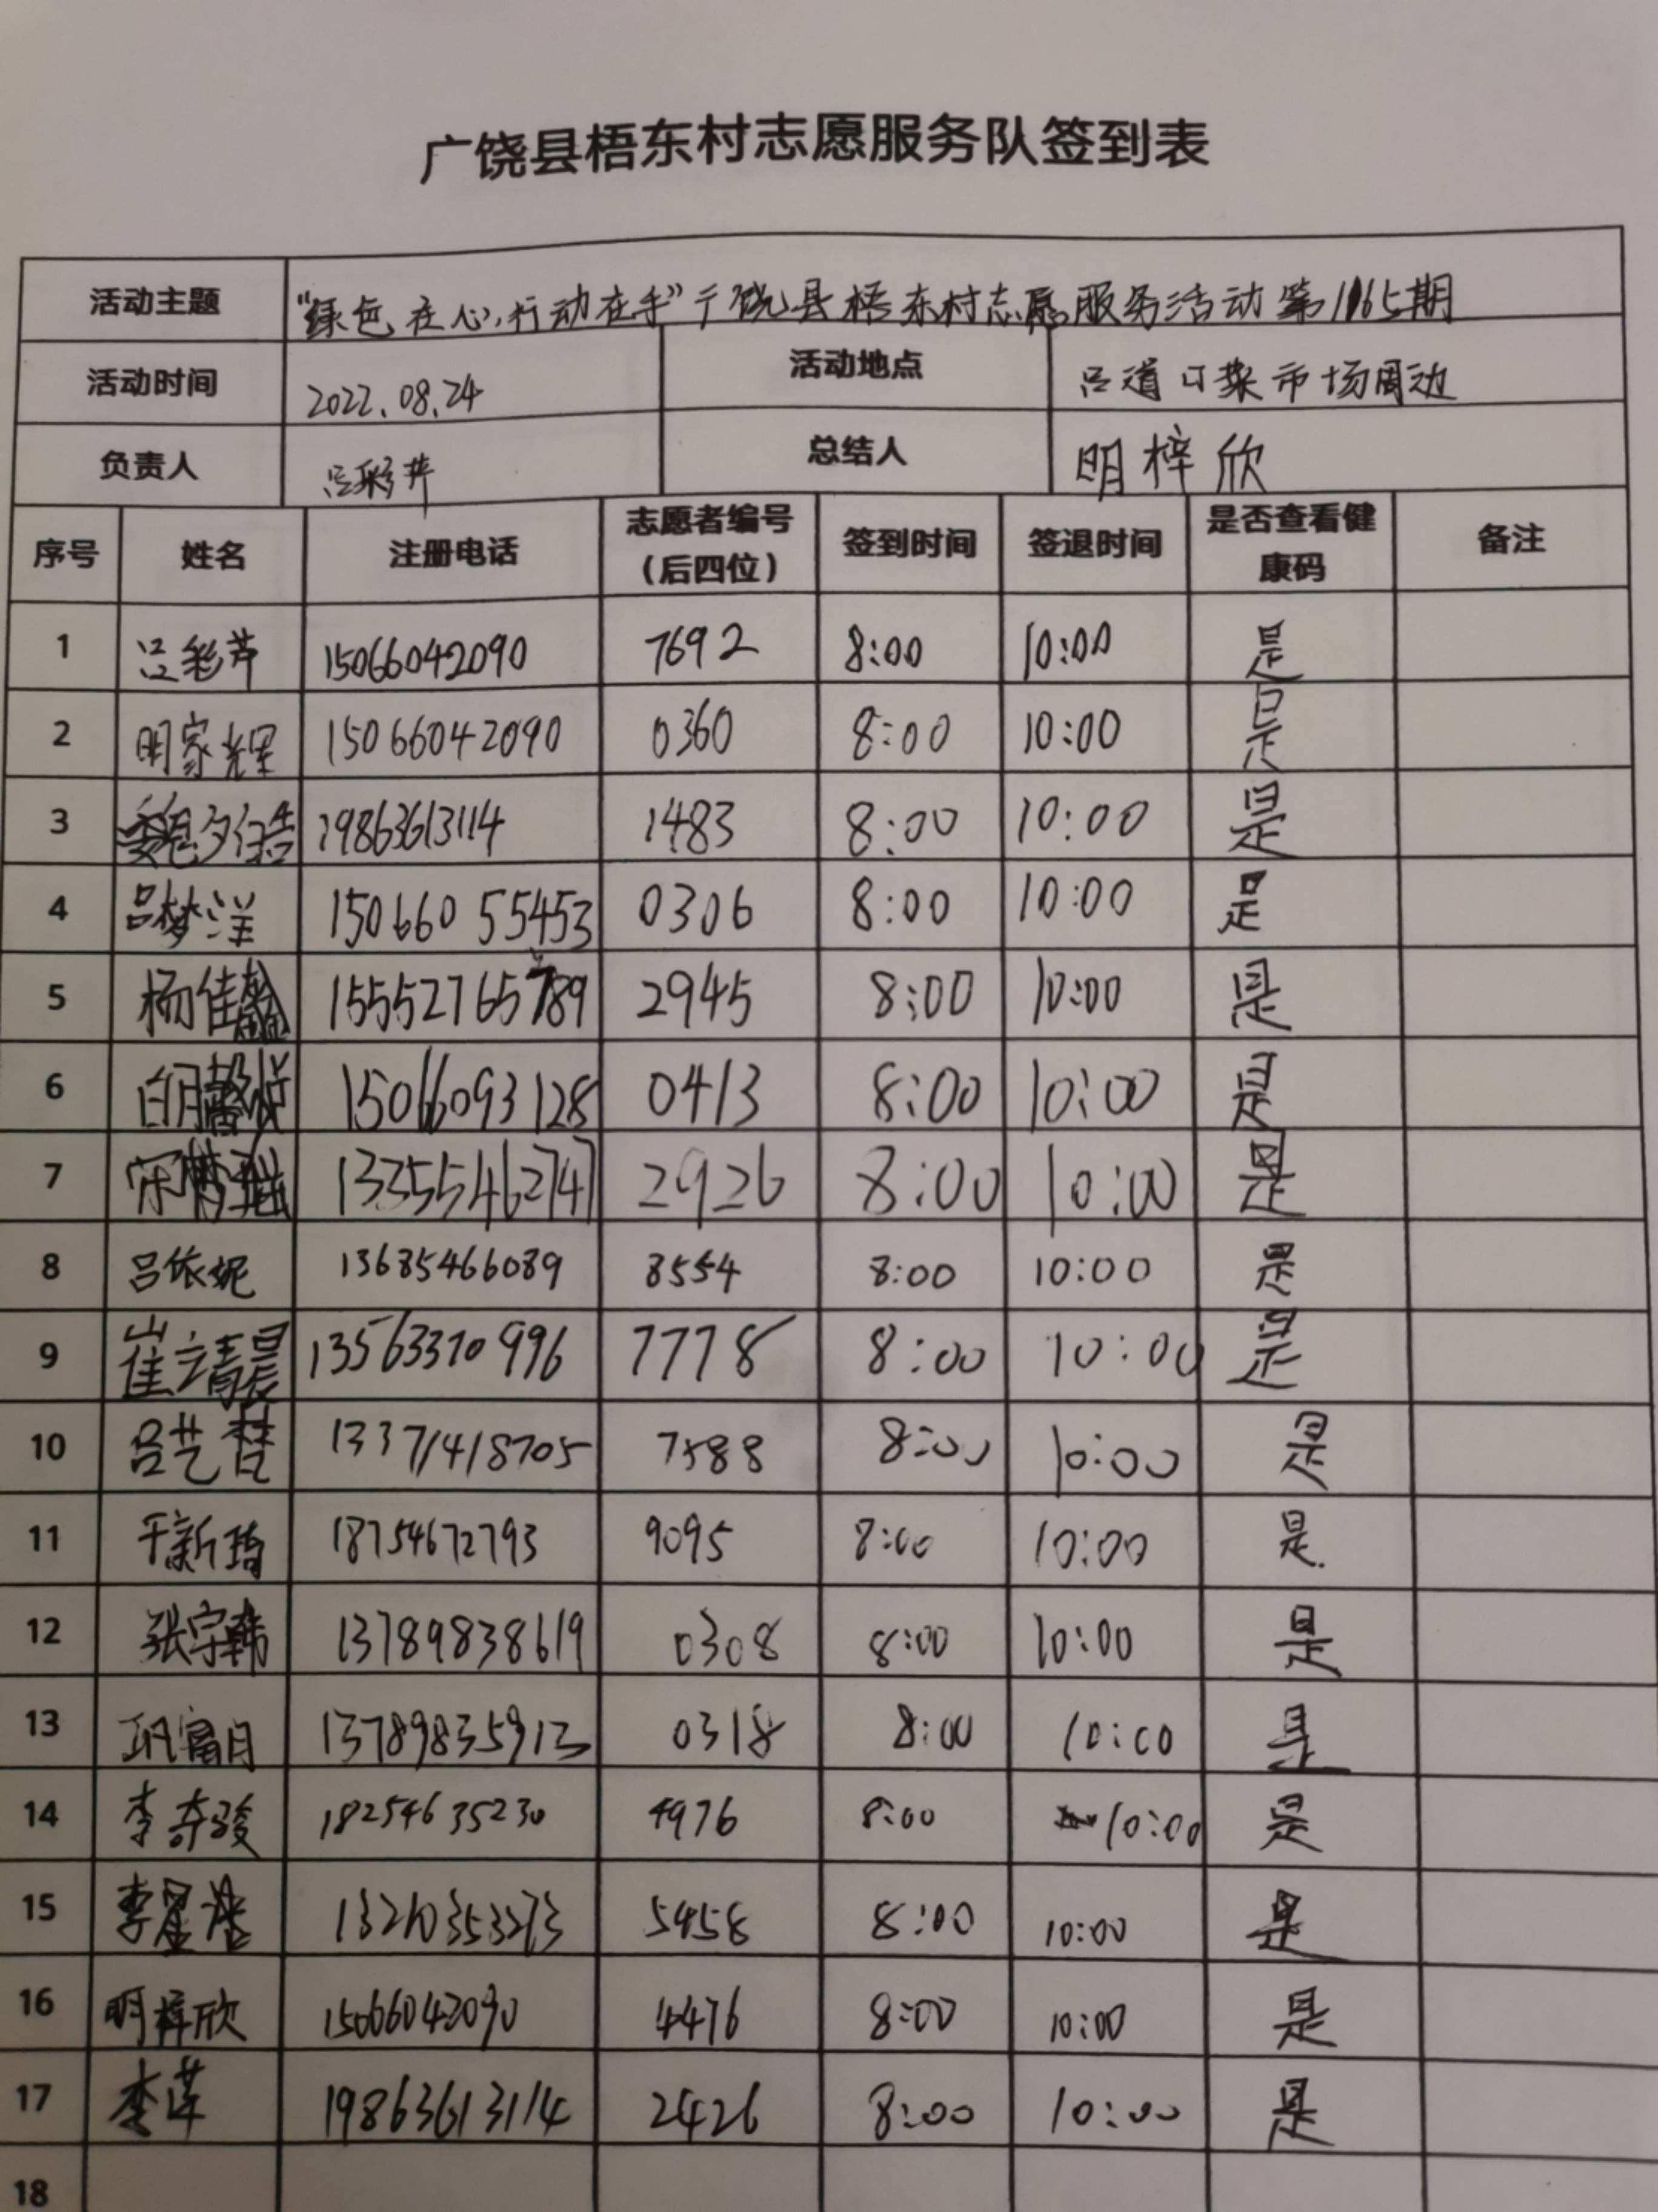 广饶县梧东村志愿服务队签到表
活动主题 "绿色在心,行动在手"广饶县梧东村志愿服务活动第1165期
活动时间 2022.08.24 活动地点 吕道口菜市场周边
负责人 吕彩芹 总结人 明梓欣
序号 姓名 注册电话 志愿者编号(后四位) 签到时间 签退时间 是否查看健康码 备注
1 吕彩芹 15066042090 7692 8:00 10:00 是
2 明家辉 15066042090 0360 8:00 10:00 是
3 19863613114 1483 8:00 10:00 是
4 吕梦洋 15066055453 0306 8:00 10:00 是
5 杨佳 15552765789 2945 8:00 10:00 是
6 15066093128 0413 8:00 10:00 是
7 宋梦瑶 13355462747 2926 8:00 10:00 是
8 吕依妮 13685466089 8554 8:00 10:00 是
9 崔靖晨 13563370996 7778 8:00 10:00 是
10 吕艺 13371418705 7588 8:00 10:00 是
11 于新琦 18754672793 9095 8:00 10:00 是.
12 张宇韩 13789838619 0308 8:00 10:00 是
13 巩富月 13789835913 0318 8:00 10:00 是
14 李奇骏 18254635230 4976 8:00 10:00 是
15 李星 13210353273 5458 8:00 10:00 是
16 明梓欣 15066042090 4476 8:00 10:00 是
17 李莲 19863613114 2426 8:00 10:00 是
18